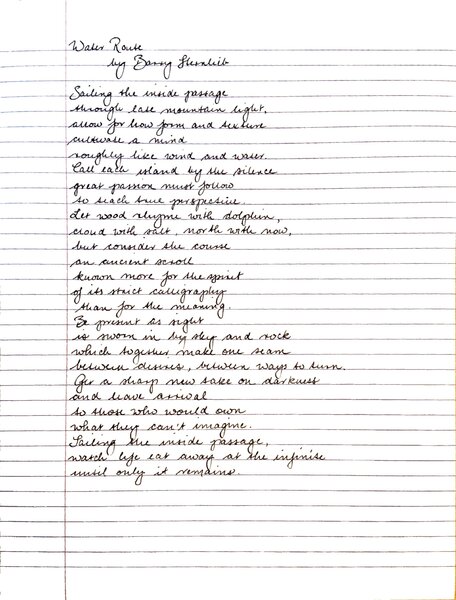 Water Route
by Barry Sternlieb
Sailing the inside passage
through late mountain light,
allow for how form and texture
cultivate a mind
roughly like wind and water.
Call each island by the silence
great passion must follow
to reach true perspective.
Let wood rhyme with dolphin,
cloud with salt, north with now,
but consider the course
an ancient scroll
known more for the spirit
of its strict calligraphy
than for the meaning.
Be present as night
is sworn in by sky and rock
which together make one seam
between desires, between ways to turn.
Get a sharp new take on darkness
and leave arrival
to those who would own
what they can't imagine.
Sailing the inside passage,
watch life eat away at the infinite
until only it remains.